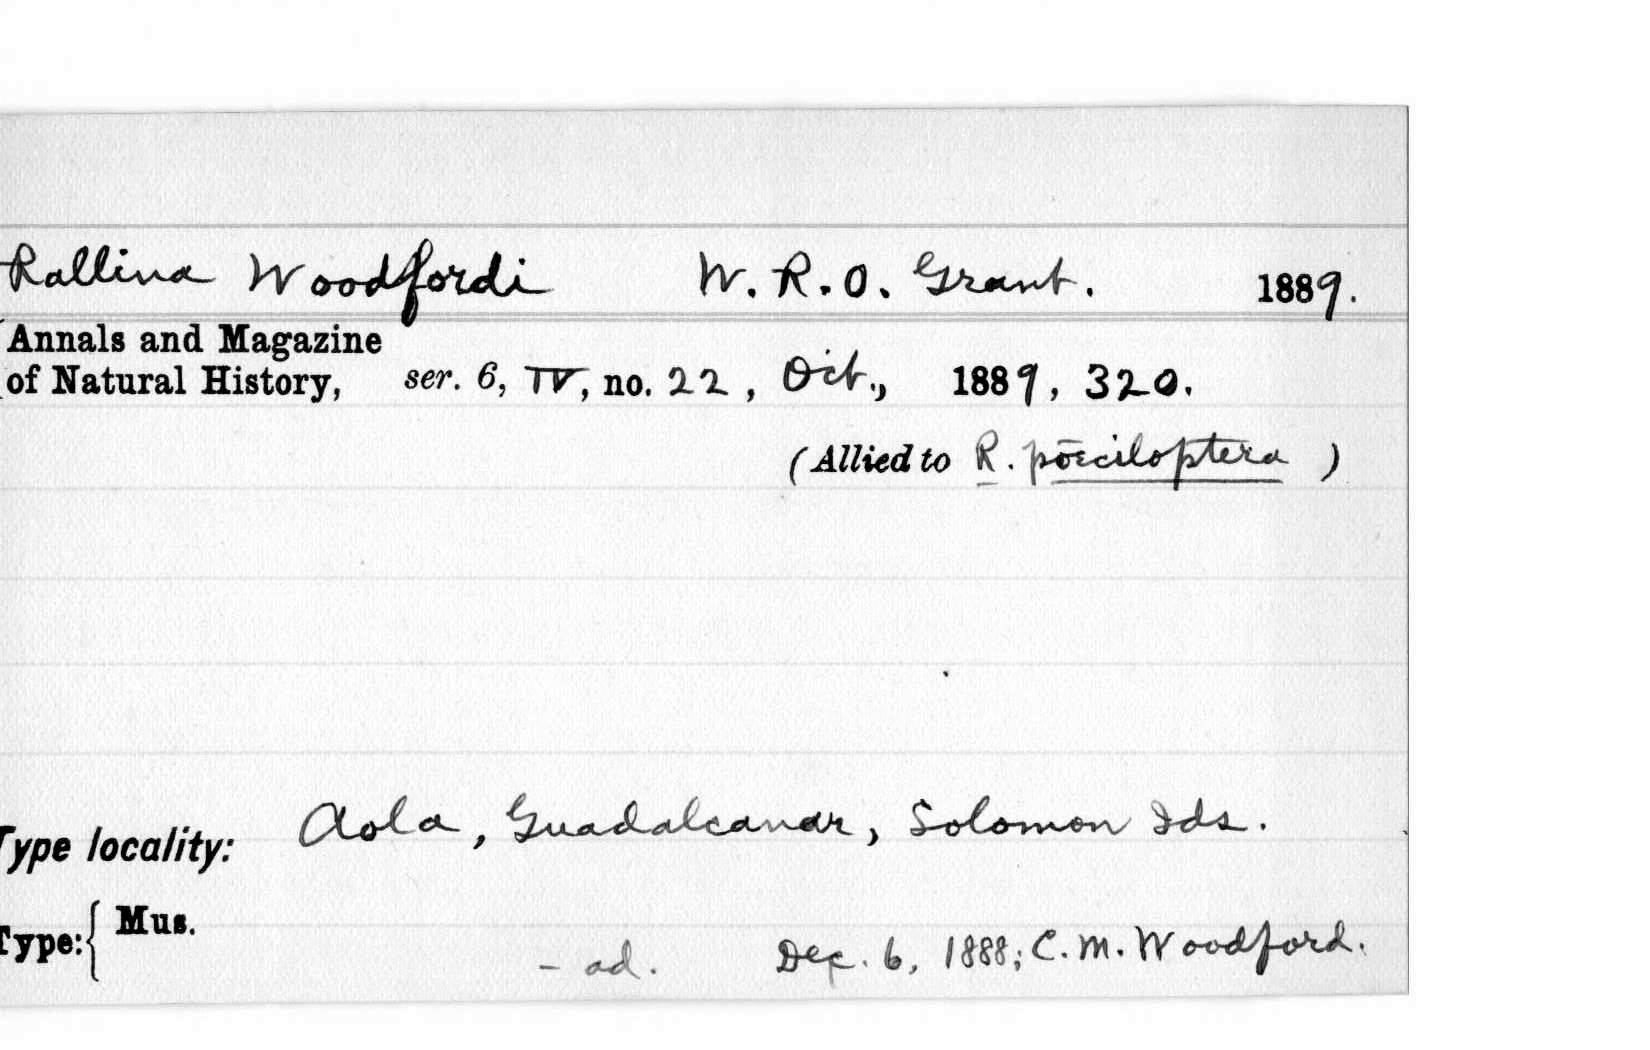 Rallina Woodfordi W. R. O. Grant. 1889.
Annals and Magazine
of Natural History, ser. 6, IV, no. 22, Oct., 1889, 320.
(Allied to R. poeciloptera )
Type locality: Aola, Guadalcanar, Solomon Ids.
Type: { Mus.
- ad. Dec. 6, 1888; C. M. Woodford.